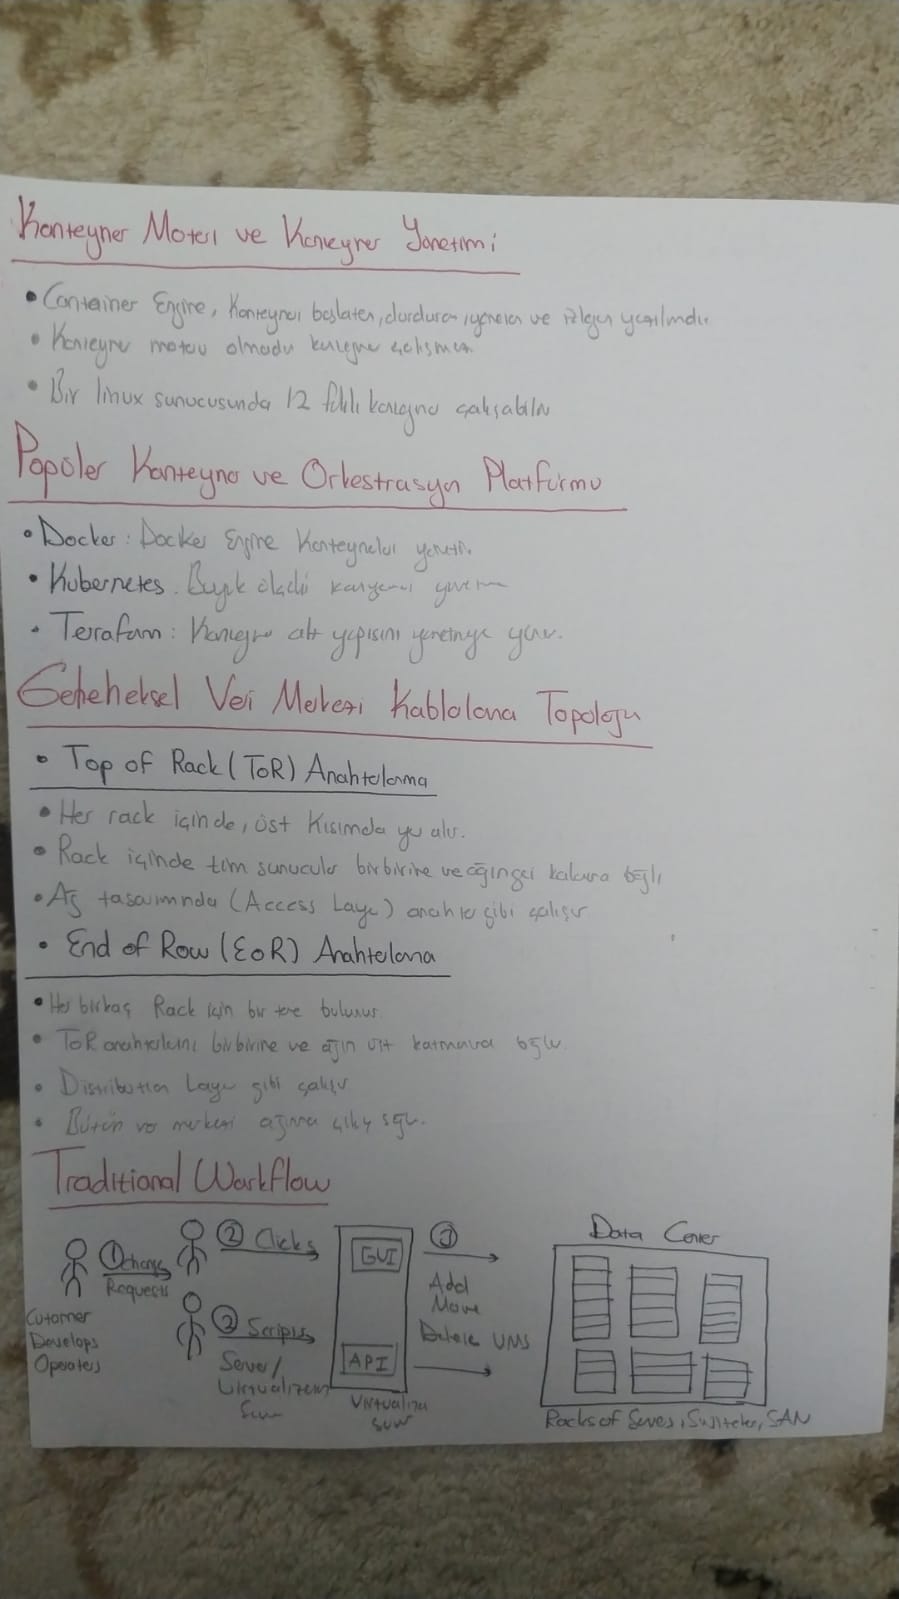 Konteyner Motoru ve Konteyner Yönetimi
• Container Engine, Konteynerı başlatan, durduran, yöneten ve izleyen yazılımdır.
• Konteyner motoru olmadan konteyner çalışmaz
• Bir linux sunucusunda 12 farklı konteyner çalışabilir
Popüler Konteyner ve Orkestrasyon Platformu
• Docker: Docker Engine Konteynerleri yönetir.
• Kubernetes. Büyük ölçekli
• Terraform: Konteyner alt yapısını yönetmeye yarar.
Geleneksel Veri Merkezi Kablolama Topoloji
• Top of Rack (ToR) Anahtarlama
• Her rack içinde, üst Kısımda yer alır.
• Rack içinde tüm sunucular birbirine ve ağın geri kalanına bağlı
• Ağ tasarımında (Access Layer) anahtar gibi çalışır
• End of Row (EoR) Anahtarlama
• Her birkaç Rack için bir tane bulunur
• ToR anahtarlarını birbirine ve ağın üst katmanına bağlar
• Distribution Layer gibi çalışır
• Bütün veri merkezi ağına çıkış sağlar.
Traditional Workflow
① Change
Requests
Cutomer
Develops
Operaters
② Clicks
② Scripts
Server/
Virtualization
GUI
API
Virtualiza
③
Add
Move
Delete VMS
Data Center
Racks of Serves, Switches, SAN